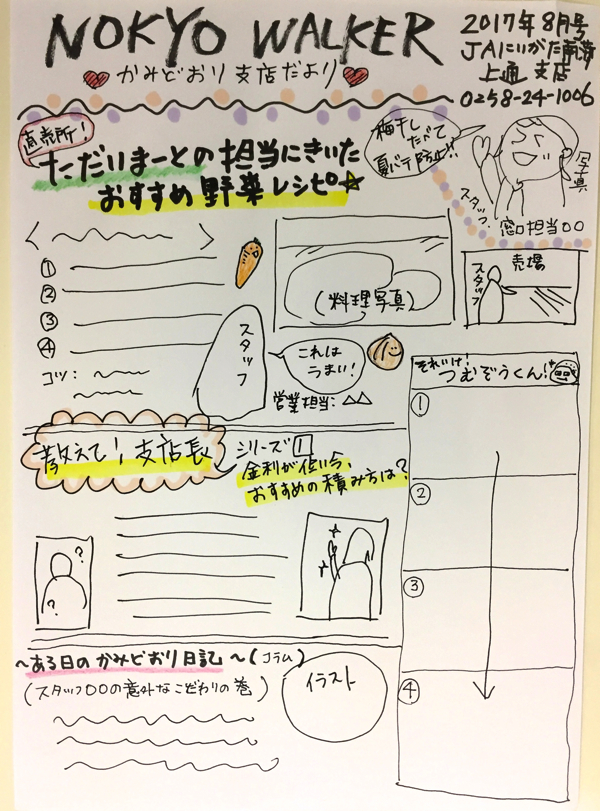 NOKYO WALKER
かみどおり支店だより
2017年8月号
JAにいがた南蒲
上通支店
0258-24-1006
直売所!
ただいまーとの担当にきいた
おすすめ野菜レシピ☆
梅干したべて
夏バテ防止!!
写真
スタッフ
窓口担当〇〇
①
②
③
④
コツ:
(料理写真)
売場
スタッフ
スタッフ
これは
うまい!
営業担当:△△
教えて!支店長
シリーズ1
金利が低い今、
おすすめの積み方は?
?
?
それいけ!
つむぞうくん!
①
②
③
④
~ある日のかみどおり日記~(コラム)
(スタッフ〇〇の意外なこだわりの巻)
イラスト